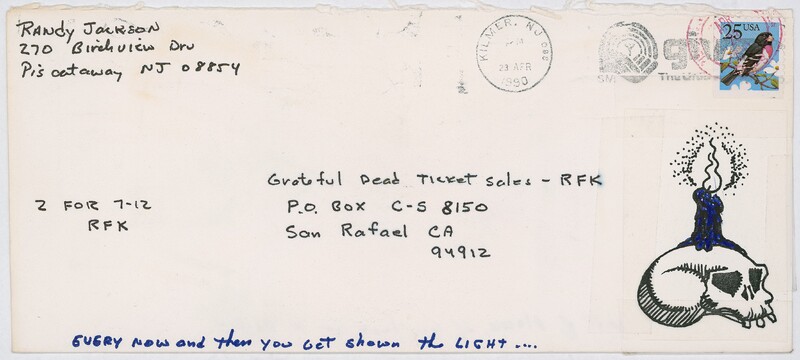 Randy Jackson
270 Birchview Drv
Piscataway NJ 08854
KILMER, NJ 088
23 APR
1990
25 USA
Grateful Dead Ticket Sales - RFK
P.O. Box C-S 8150
San Rafael CA
94912
2 FOR 7-12
RFK
EVERY NOW and then you Get shown the LIGHT ....